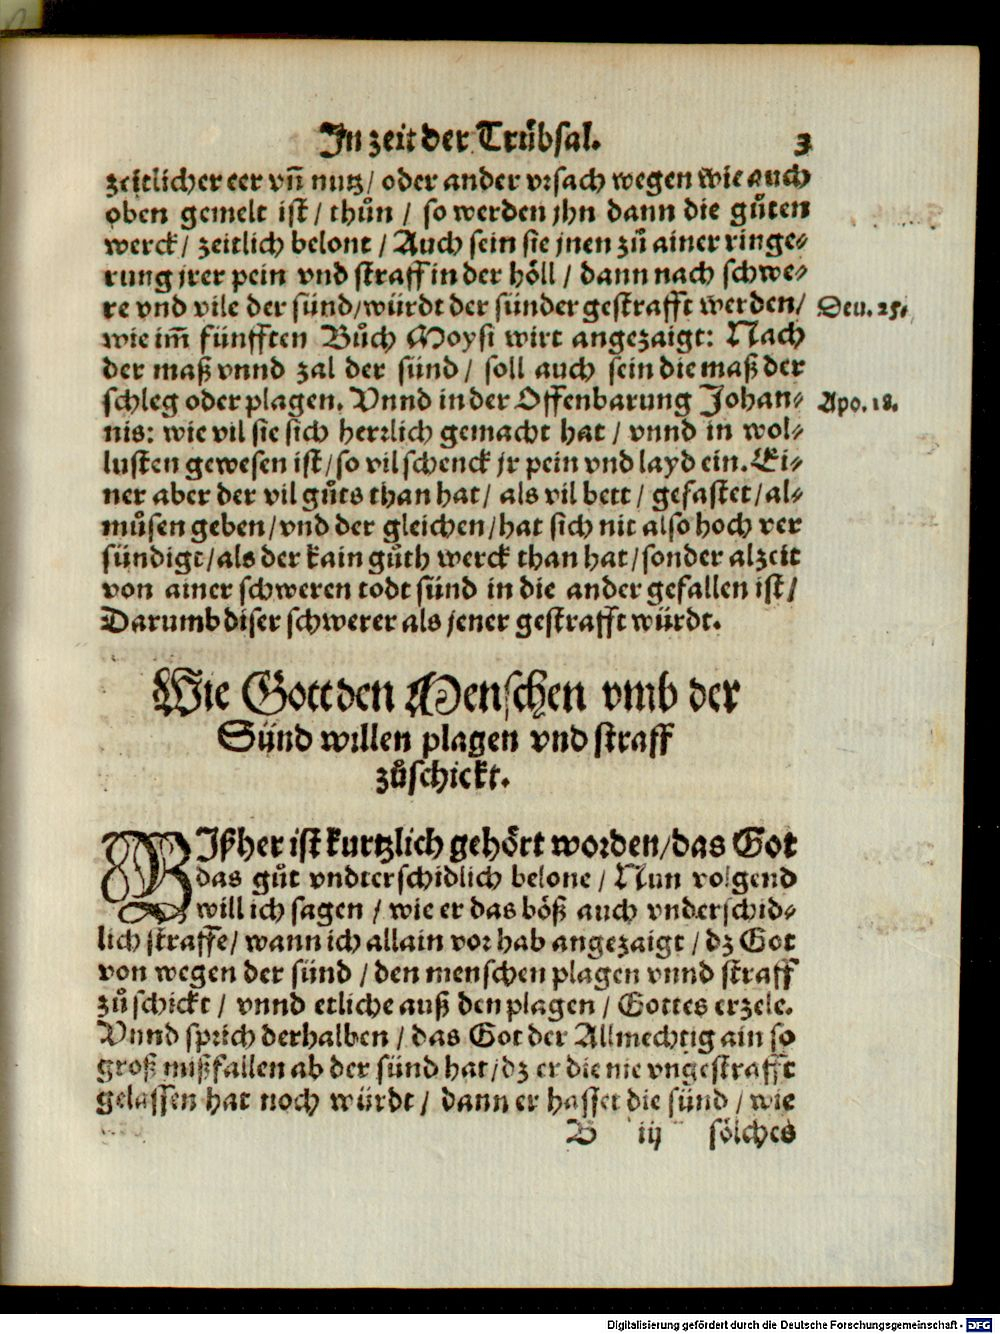 In zeit der Truͤbsal. 3
zeitlicher eer vn̄ nutz / oder ander vrsach wegen wie auch
oben gemelt ist / thuͦn / so werden jhn dann die guͦten
werck / zeitlich belont / Auch sein sie jnen zuͦ ainer ringe⸗
rung jrer pein vnd straff in der hoͤll / dann nach schwe⸗
re vnd vile der sünd / würdt der sünder gestrafft werden / Deu. 25.
wie im̄ fünfften Buͦch Moysi wirt angezaigt: Nach
der maß vnnd zal der sünd / soll auch sein die maß der
schleg oder plagen. Vnnd in der Offenbarung Johan⸗ Apo. 18.
nis: wie vil sie sich herrlich gemacht hat / vnnd in wol⸗
lusten gewesen ist / so vil schenck jr pein vnd layd ein. Ei⸗
ner aber der vil guͦts than hat / als vil bett / gefastet / al⸗
muͦsen geben / vnd der gleichen / hat sich nit also hoch ver
sündigt / als der kain guͦth werck than hat / sonder alzeit
von ainer schweren todt sünd in die ander gefallen ist /
Darumb diser schwerer als jener gestrafft würdt.
Wie Gott den Menschen vmb der
Sünd willen plagen vnd straff
zuͦschickt.
BIßher ist kurtzlich gehoͤrt worden / das Got
das guͦt vndterschidlich belone / Nun volgend
will ich sagen / wie er das boͤß auch vnderschid⸗
lich straffe / wann ich allain vor hab angezaigt / dz Got
von wegen der sünd / den menschen plagen vnnd straff
zuͦ schickt / vnnd etliche auß den plagen / Gottes erzele.
Vnnd sprich derhalben / das Got der Allmechtig ain so
groß mißfallen ab der sünd hat / dz er die nie vngestrafft
gelassen hat noch würdt / dann er hasset die sünd / wie
B iij soͤlches
Digitalisierung gefördert durch die Deutsche Forschungsgemeinschaft - DFG